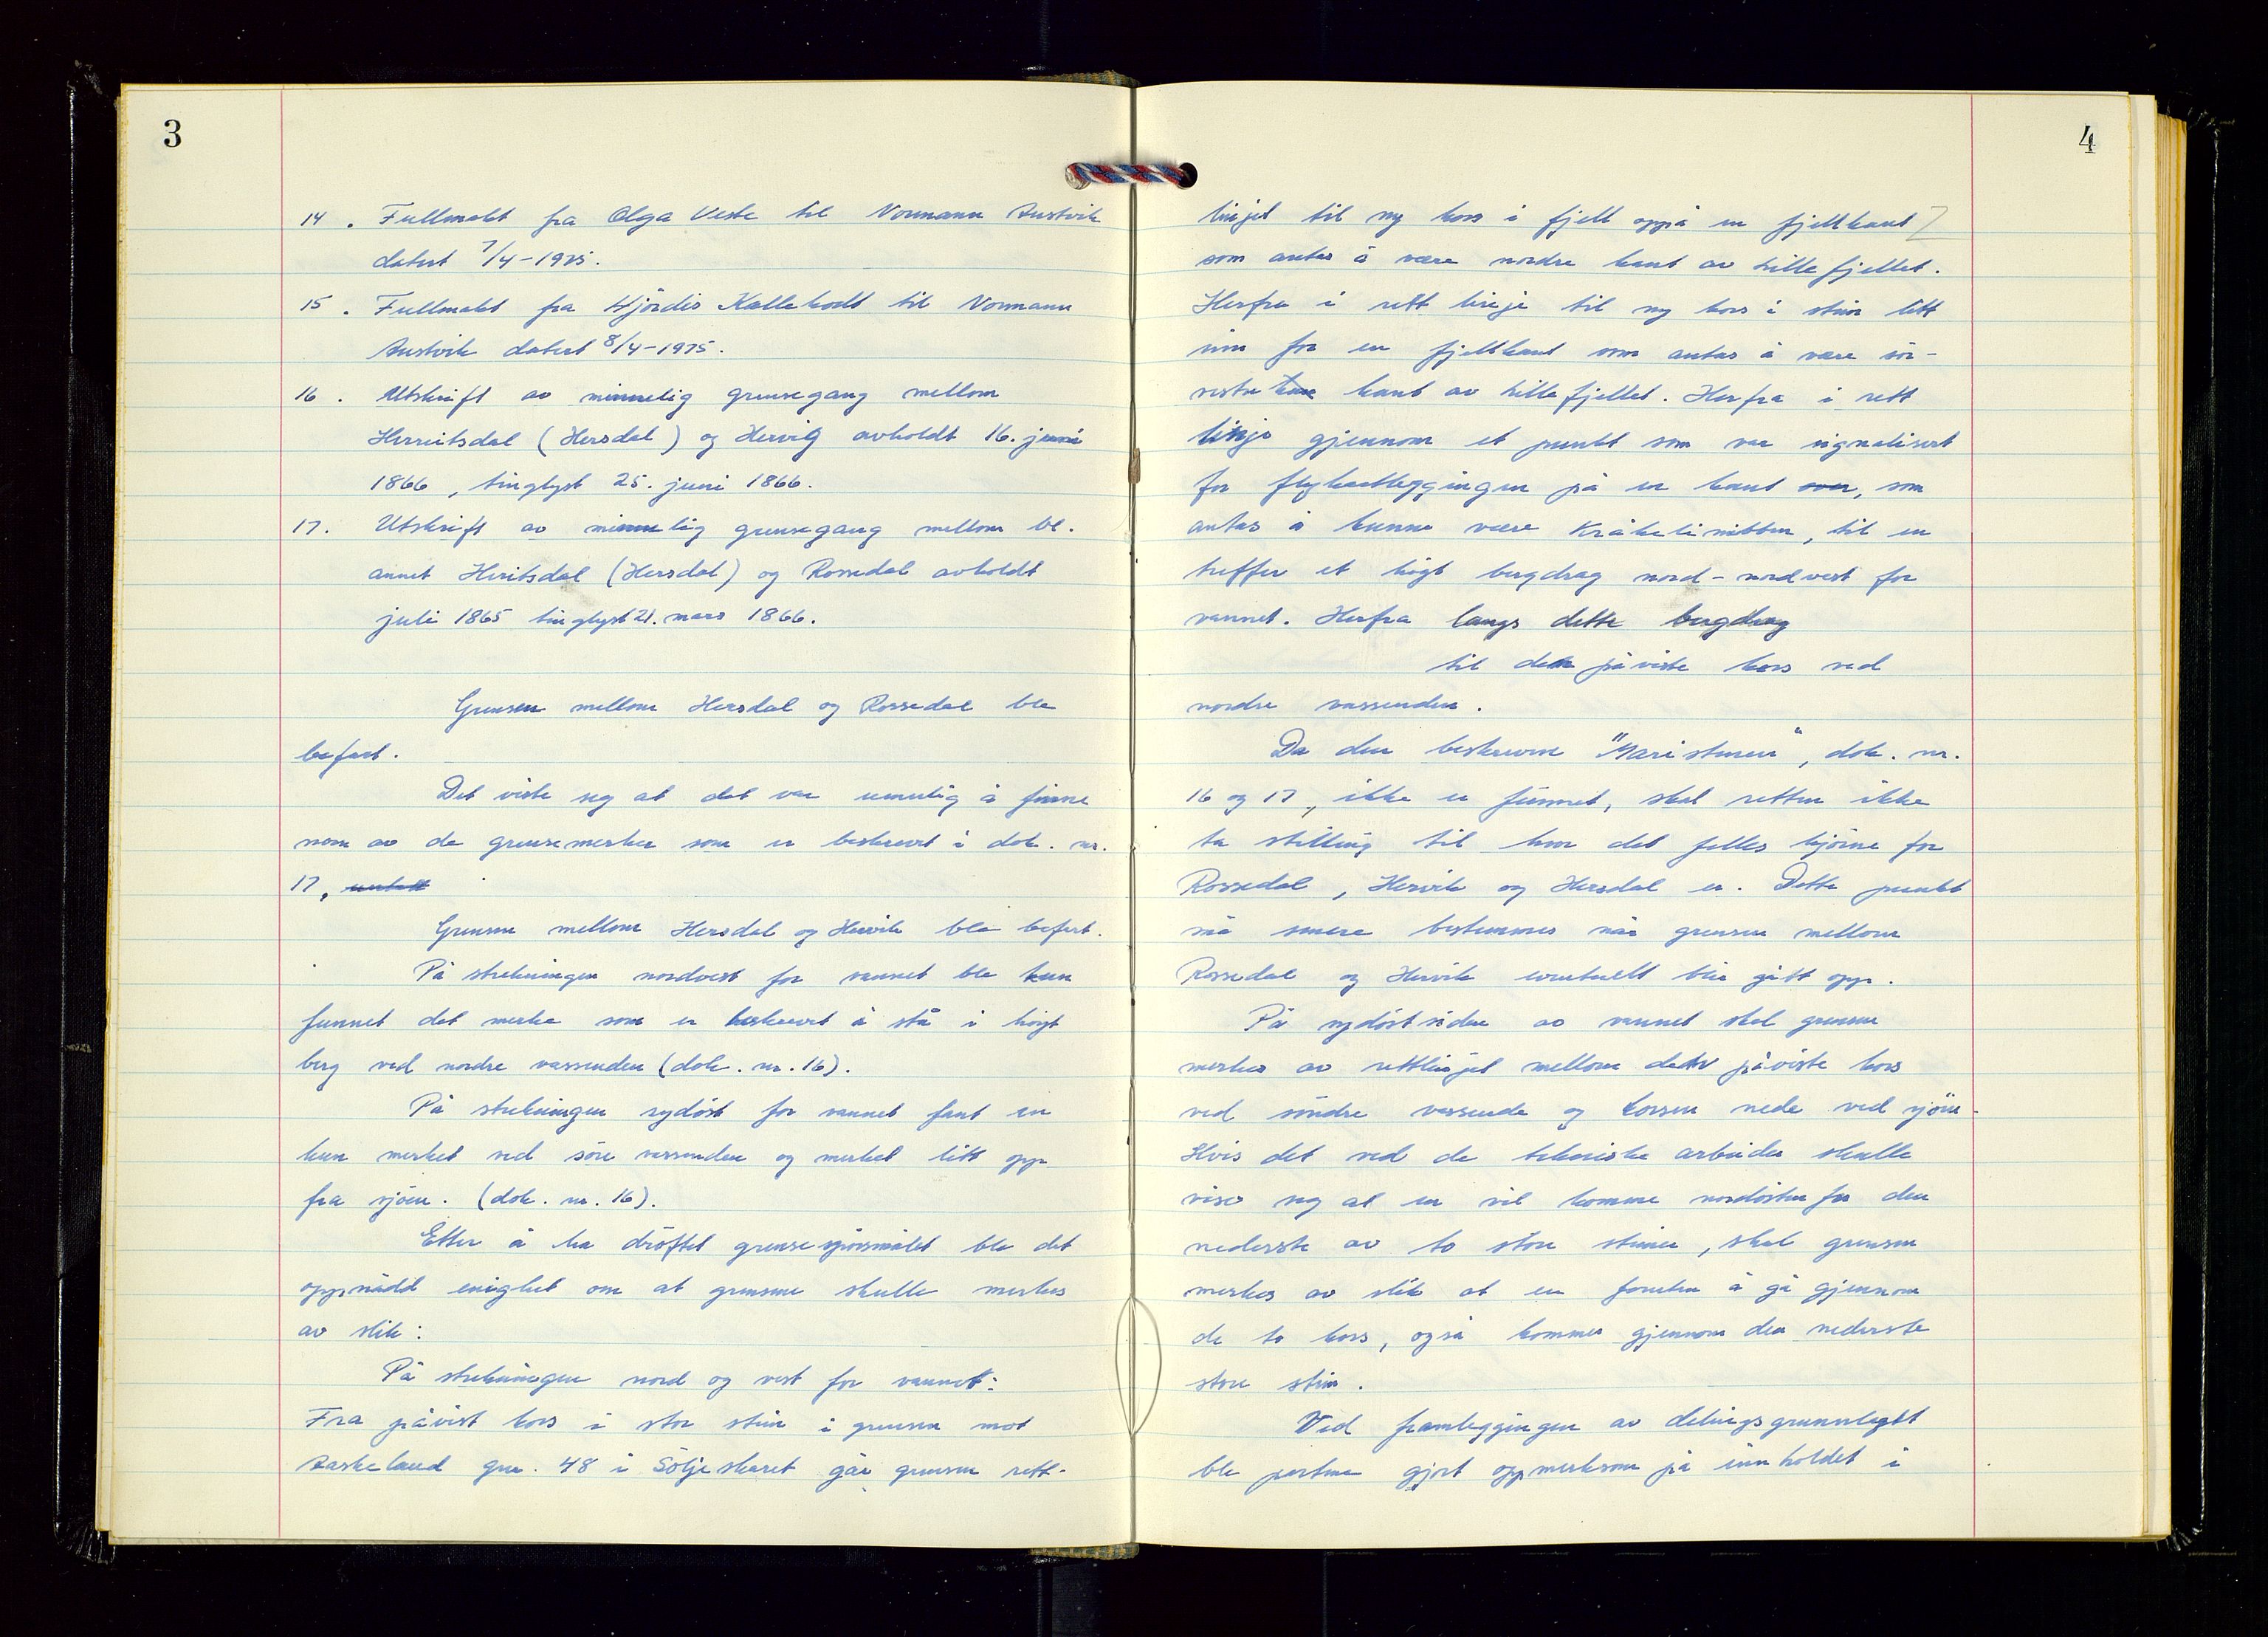 3
14. Fullmakt fra Olga Veste til Normann Austvik
datert 7/4-1975.
15. Fullmakt fra Hjördis Kallekodt til Normann
Austvik datert 8/4-1975.
16. Utskrift av minnelig grensegang mellom
Herreitsdal (Hersdal) og Hervig avholdt 16. juni
1866, tinglyst 25. juni 1866.
17. Utskrift av minnelig grensegang mellom bl.
annet Heritsdal (Hersdal) og Rossedal avholdt
juli 1865 tinglyst 21. mars 1866.
Grensen mellom Hersdal og Rossedal ble
befart.
Det viste seg at det var umulig å finne
noen av de grensemerker som er beskrevet i dok. nr.
17.
Grensen mellom Hersdal og Hervik ble befart.
På strekningen nordvest for vannet ble kun
funnet det merke som er beskrevet å stå i högt
berg ved nordre vassenden (dok. nr. 16).
På strekningen sydöst for vannet fant en
kun merket ved söre vassenden og merket litt opp
fra sjöen. (dok. nr. 16).
Etter å ha dröftet grensespörsmålet ble det
oppnådd enighet om at grensene skulle merkes
av slik:
På strekningen nord og vest for vannet:
Fra påvist kors i stor stein i grensen mot
Aaskeland gnr. 48 i Söljeskaret går grensen rett-
4
linjet til ny kors i fjell oppå en fjellkant
som antas å være nordre kant av Lillefjellet.
Herfra i rett linje til ny kors i stein litt
inn for en fjellkant som antas å være sör-
vestre kant av Lillefjellet. Herfra i rett
linje gjennom et punkt som var signalisert
for flykartleggingen på en kant over, som
antas å kunne være Kråkelinibben, til en
treffer et högt bergdrag nord-nordvest for
vannet. Herfra langs dette bergdrag
til den påviste kors ved
nordre vassenden.
Da den beskrevne "Maristeinen", dok. nr.
16 og 17, ikke er funnet, skal retten ikke
ta stilling til hvor det felles hjörne for
Rossedal, Hervik og Hersdal er. Dette punkt
må senere bestemmes når grensen mellom
Rossedal og Hervik eventuelt blir gått opp.
På sydöstsiden av vannet skal grensen
merkes av rettlinjet mellom det påviste kors
ved söndre vassende og korsen nede ved sjöen.
Hvis det ved de tekniske arbeider skulle
vise seg at en vil komme nordösten for den
nederste av to store steiner, skal grensen
merkes av slik at en foruten å gå gjennom
de to kors, også kommer gjennom den nederste
store stein.
Ved framleggingen av delingsgrunnlaget
ble partene gjort oppmerksom på innholdet i